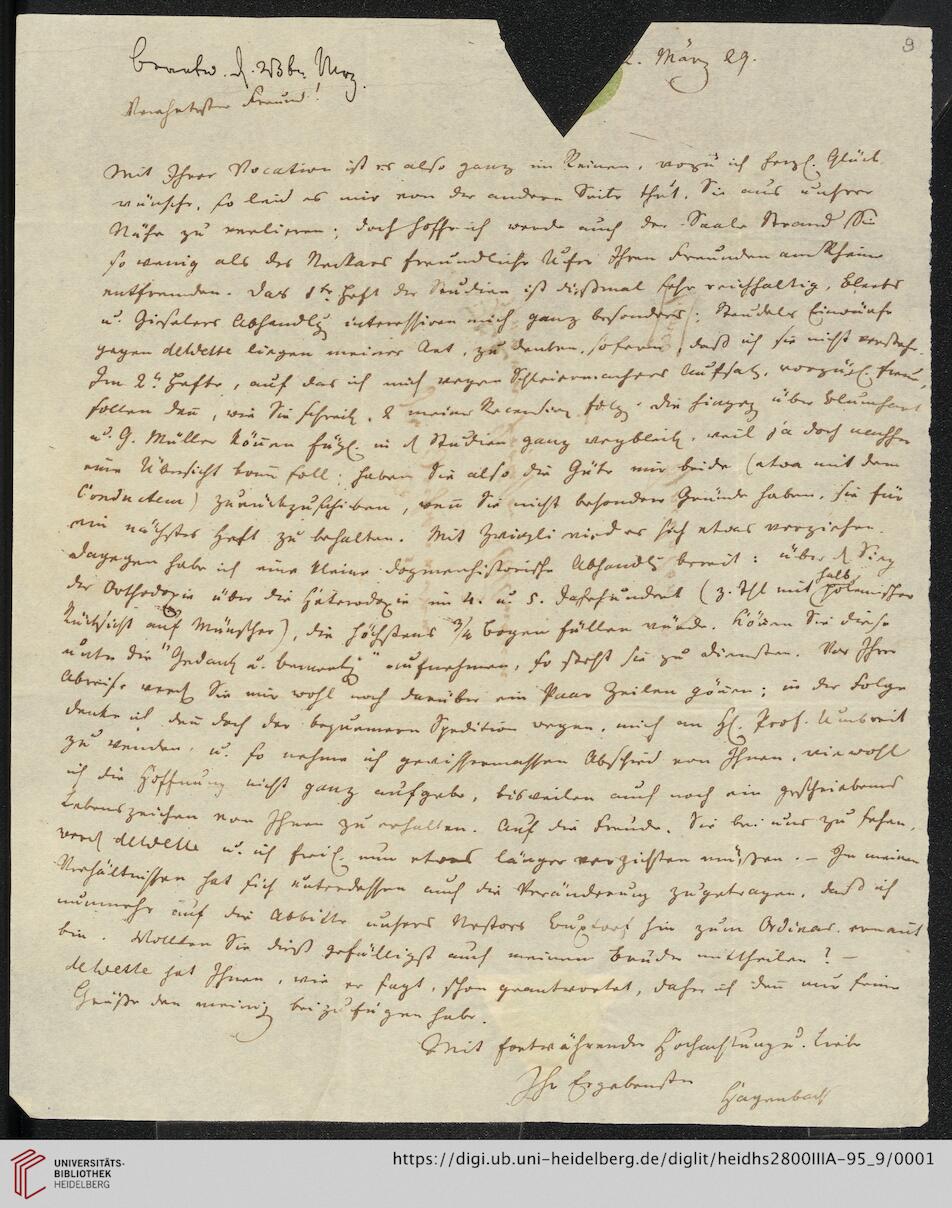 9
2. März 29.
beantw. d. 23br. Mrz.
Verehrtester Freund!
Mit Ihrer Vocation ist es also ganz im Reinen, wozu ich herzl. Glück
wünsche, so leid es mir von der andern Seite thut, Sie aus unsrer
Nähe zu verlieren; doch hoffe ich werde auch der Saale Strand Sie
so wenig als des Neckars freundliche Ufer Ihren Freunden am Rheine
entfremden. Das 1te Heft der Studien ist dießmal sehr reichhaltig,
u. Gieselers Abhandlg interessiren mich ganz besonders; Steudels Einwürfe
gegen deWette liegen meiner Art, zu denken, so fern, daß ich sie nicht verstehe.
Im 2n Hefte, auf das ich mich wegen Schleiermachers Aufsatz, vorzügl. freue,
sollen den, wie Sie schreib., meine Recension folg. Die hingeg. über Blumhart
u. J. Müller könen fügl. in d Studien ganz wegbleib., weil ja doch nachher
eine Übersicht kom soll; haben Sie also die Güte mir beide (etwa mit dem
Conductem) zurückzuschicken, wen Sie nicht besondere Gründe haben, sie für
ein nächstes Heft zu behalten. Mit Zwingli wird es sich etwas verziehen
dagegen habe ich eine kleine dogmenhistorische Abhandlg bereit: über d Sieg
der Orthodoxie über die Heterodoxie im 4. u. 5. Jahrhundert (z. Thl mit halb polemischer
Rücksicht auf Münscher), die höchstens 3/4 Bogen füllen würde. Könen Sie diese
unter die "Gedank u. bemerkg" aufnehmen, so steht sie zu Diensten. Vor Ihrer
Abreise werd Sie mir wohl noch darüber ein Paar Zeilen gönen; in der Folge
denke ich den doch der bequemern Spedition wegen, mich an H. Prof. Umbreit
zu wenden, u. so nehme ich gewissermassen Abschied von Ihnen, wiewohl
ich die Hoffnung nicht ganz aufgebe, bisweilen auch noch ein geschriebenes
Lebenszeichen von Ihnen zu erhalten. Auf die Freude, Sie bei uns zu sehen,
werd deWette u. ich freil. nun etwas länger verzichten müssen. – In meinen
Verhältnissen hat sich unterdessen auch die Veränderung zugetragen, daß ich
nunmehr auf die Abbitte unsers Nestors Buxtorf hin zum Ordinar. ernant
bin. Wollten Sie dieß gefälligst auch meinem Bruder mittheilen? –
deWette hat Ihnen, wie er sagt, schon geantwortet, daher ich den nur seine
Grüße den meinig beizufügen habe.
Mit fortwährender Hochachtung u. Liebe
Ihr Ergebenster
Hagenbach
UNIVERSITÄTS-
BIBLIOTHEK
HEIDELBERG
https://digi.ub.uni-heidelberg.de/diglit/heidhs2800IIIA-95_9/0001